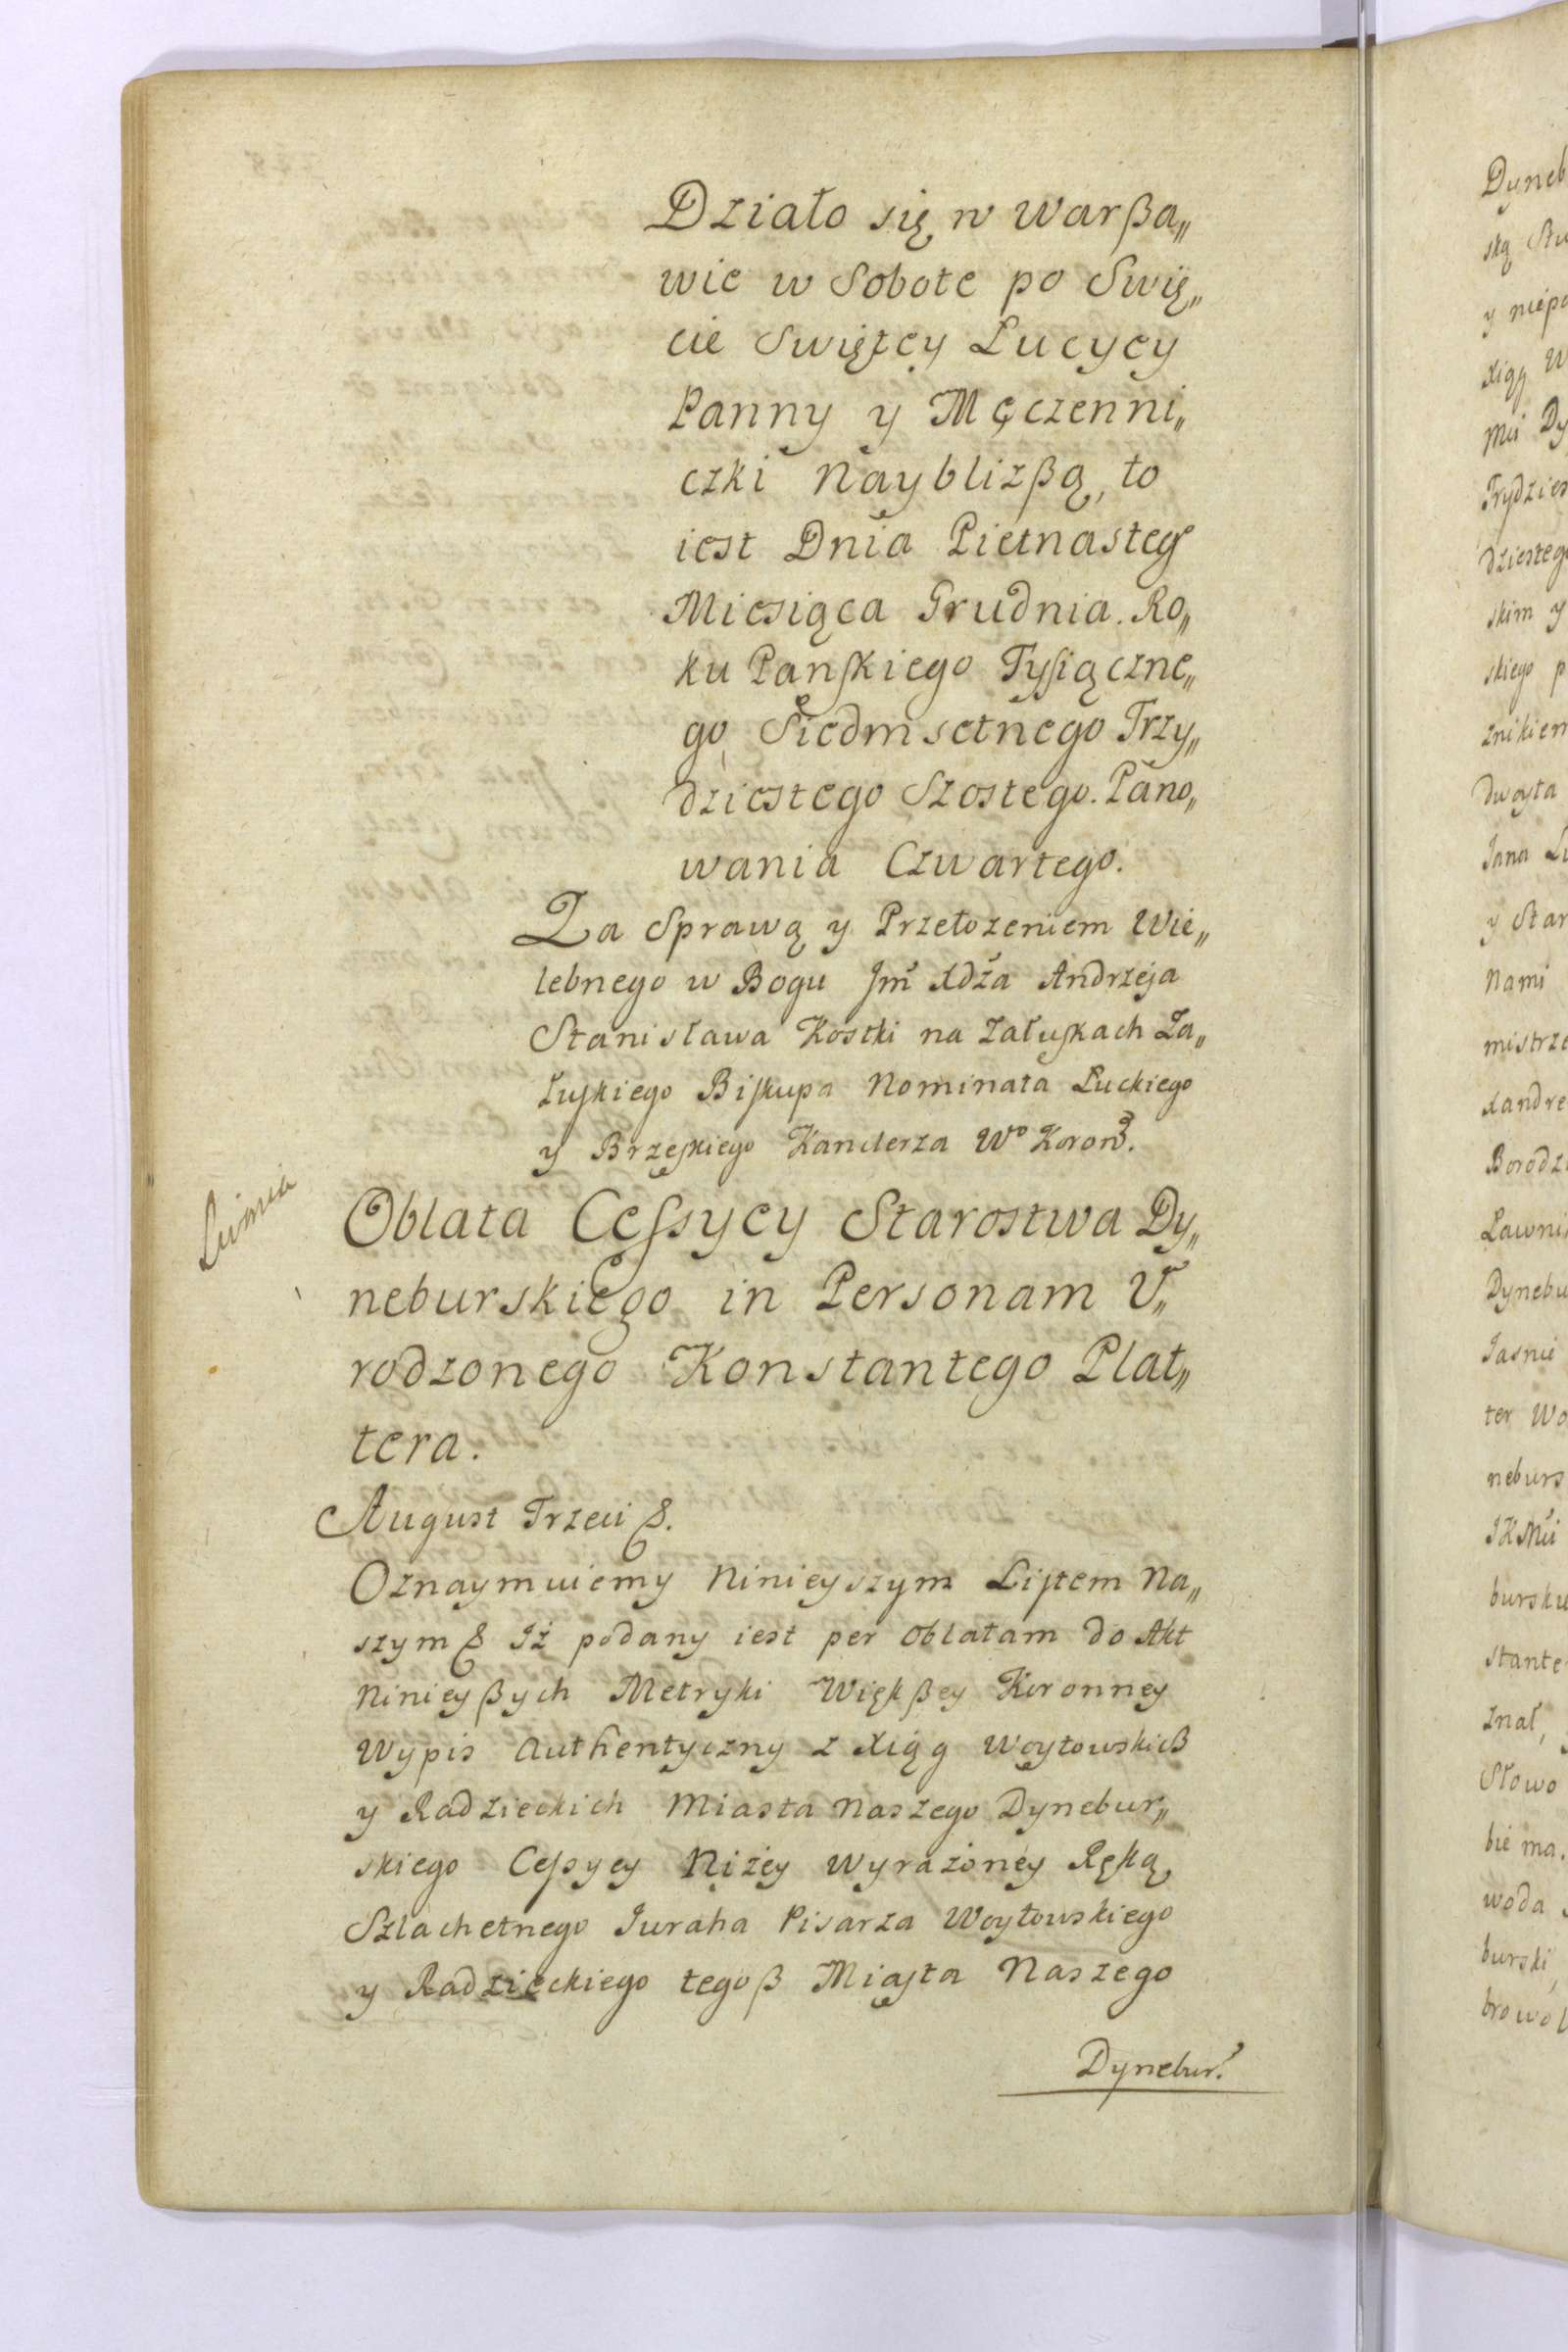 Działo się w Warßa„
wie w Sobote po Swię„
cie Swiętey Lucycy
Panny y Męczenni„
czki Nayblizßą, to
iest Dnia Piętnasteg
Miesiąca Grudnia. Ro„
ku Panskiego Tysiączne„
go Siedmsetnego Trzy„
dziestego Szostego. Pano„
wania Czwartego.
Za Sprawą y Przełozeniem Wie„
lebnego w Bogu Jm̃ Xdza Andrzeja
Stanisława Kostki na Załuskach Za„
łuskiego Biskupa Nominata Łuckiego
y Brzeskiego Kanclerza Wo Koron.
Oblata Cessycy Starostwa Dy„
neburskiego in Personam U„
rodzonego Konstantego Plat„
tera.
August Trzeci &.
Oznaymuiemy Ninieyszym Listem Na„
szym & Iż podany iest per Oblatam do Akt
Ninieyßych Metryki Więkßey Koronney
Wypis Authentyczny z Xiąg Woytowskich
y Radzieckich Miasta Naszego Dynebur„
skiego Cessycy Niżey Wyrażoney Ręką
Szlachetnego Juraha Pisarza Woytowskiego
y Radzieckiego tegoß Miasta Naszego
Dynebur.
Dyneb
ską
y niepo
Xiąg W
Dy
Trydzies
dziestego
skim y
skiego p
znikiem
dwoyta
Jana
y Star
Nami
mistrze
xandre
Borodz
Ławni
Dynebu
Jasnie
ter Wo
neburs
burskie
stante
znał,
Słowo
bie ma.
woda
burski
browol